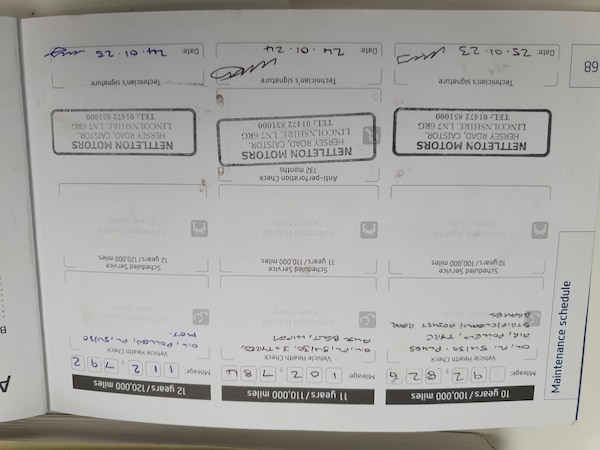 68
Maintenance schedule
10 years / 100,000 miles
Mileage: 92,826
Vehicle Health Check
OIL, FIL 5W30, PLUGS
AIR, POLLEN,
STRIP/CLEAN/ADJUST REAR
BRAKES
Scheduled Service
10 years / 100,000 miles
NETTLETON MOTORS
HERSEY ROAD, CAISTOR,
LINCOLNSHIRE. LN7 6RG
TEL: 01472 851000
Technician's signature
Date: 25.01.23
11 years / 110,000 miles
Mileage: 102,784
Vehicle Health Check
OIL, FIL, 5W/30, 3 x TYRES,
AUX BELT, WIPER
Scheduled Service
11 years / 110,000 miles
Anti-perforation Check
132 months
NETTLETON MOTORS
HERSEY ROAD, CAISTOR,
LINCOLNSHIRE. LN7 6RG
TEL: 01472 851000
Technician's signature
Date: 24.01.24
12 years / 120,000 miles
Mileage: 112,792
Vehicle Health Check
OIL, POLLEN, FIL 5W/30
MOT.
Scheduled Service
12 years / 120,000 miles
NETTLETON MOTORS
HERSEY ROAD, CAISTOR,
LINCOLNSHIRE. LN7 6RG
TEL: 01472 851000
Technician's signature
Date: 24.01.25
A
B